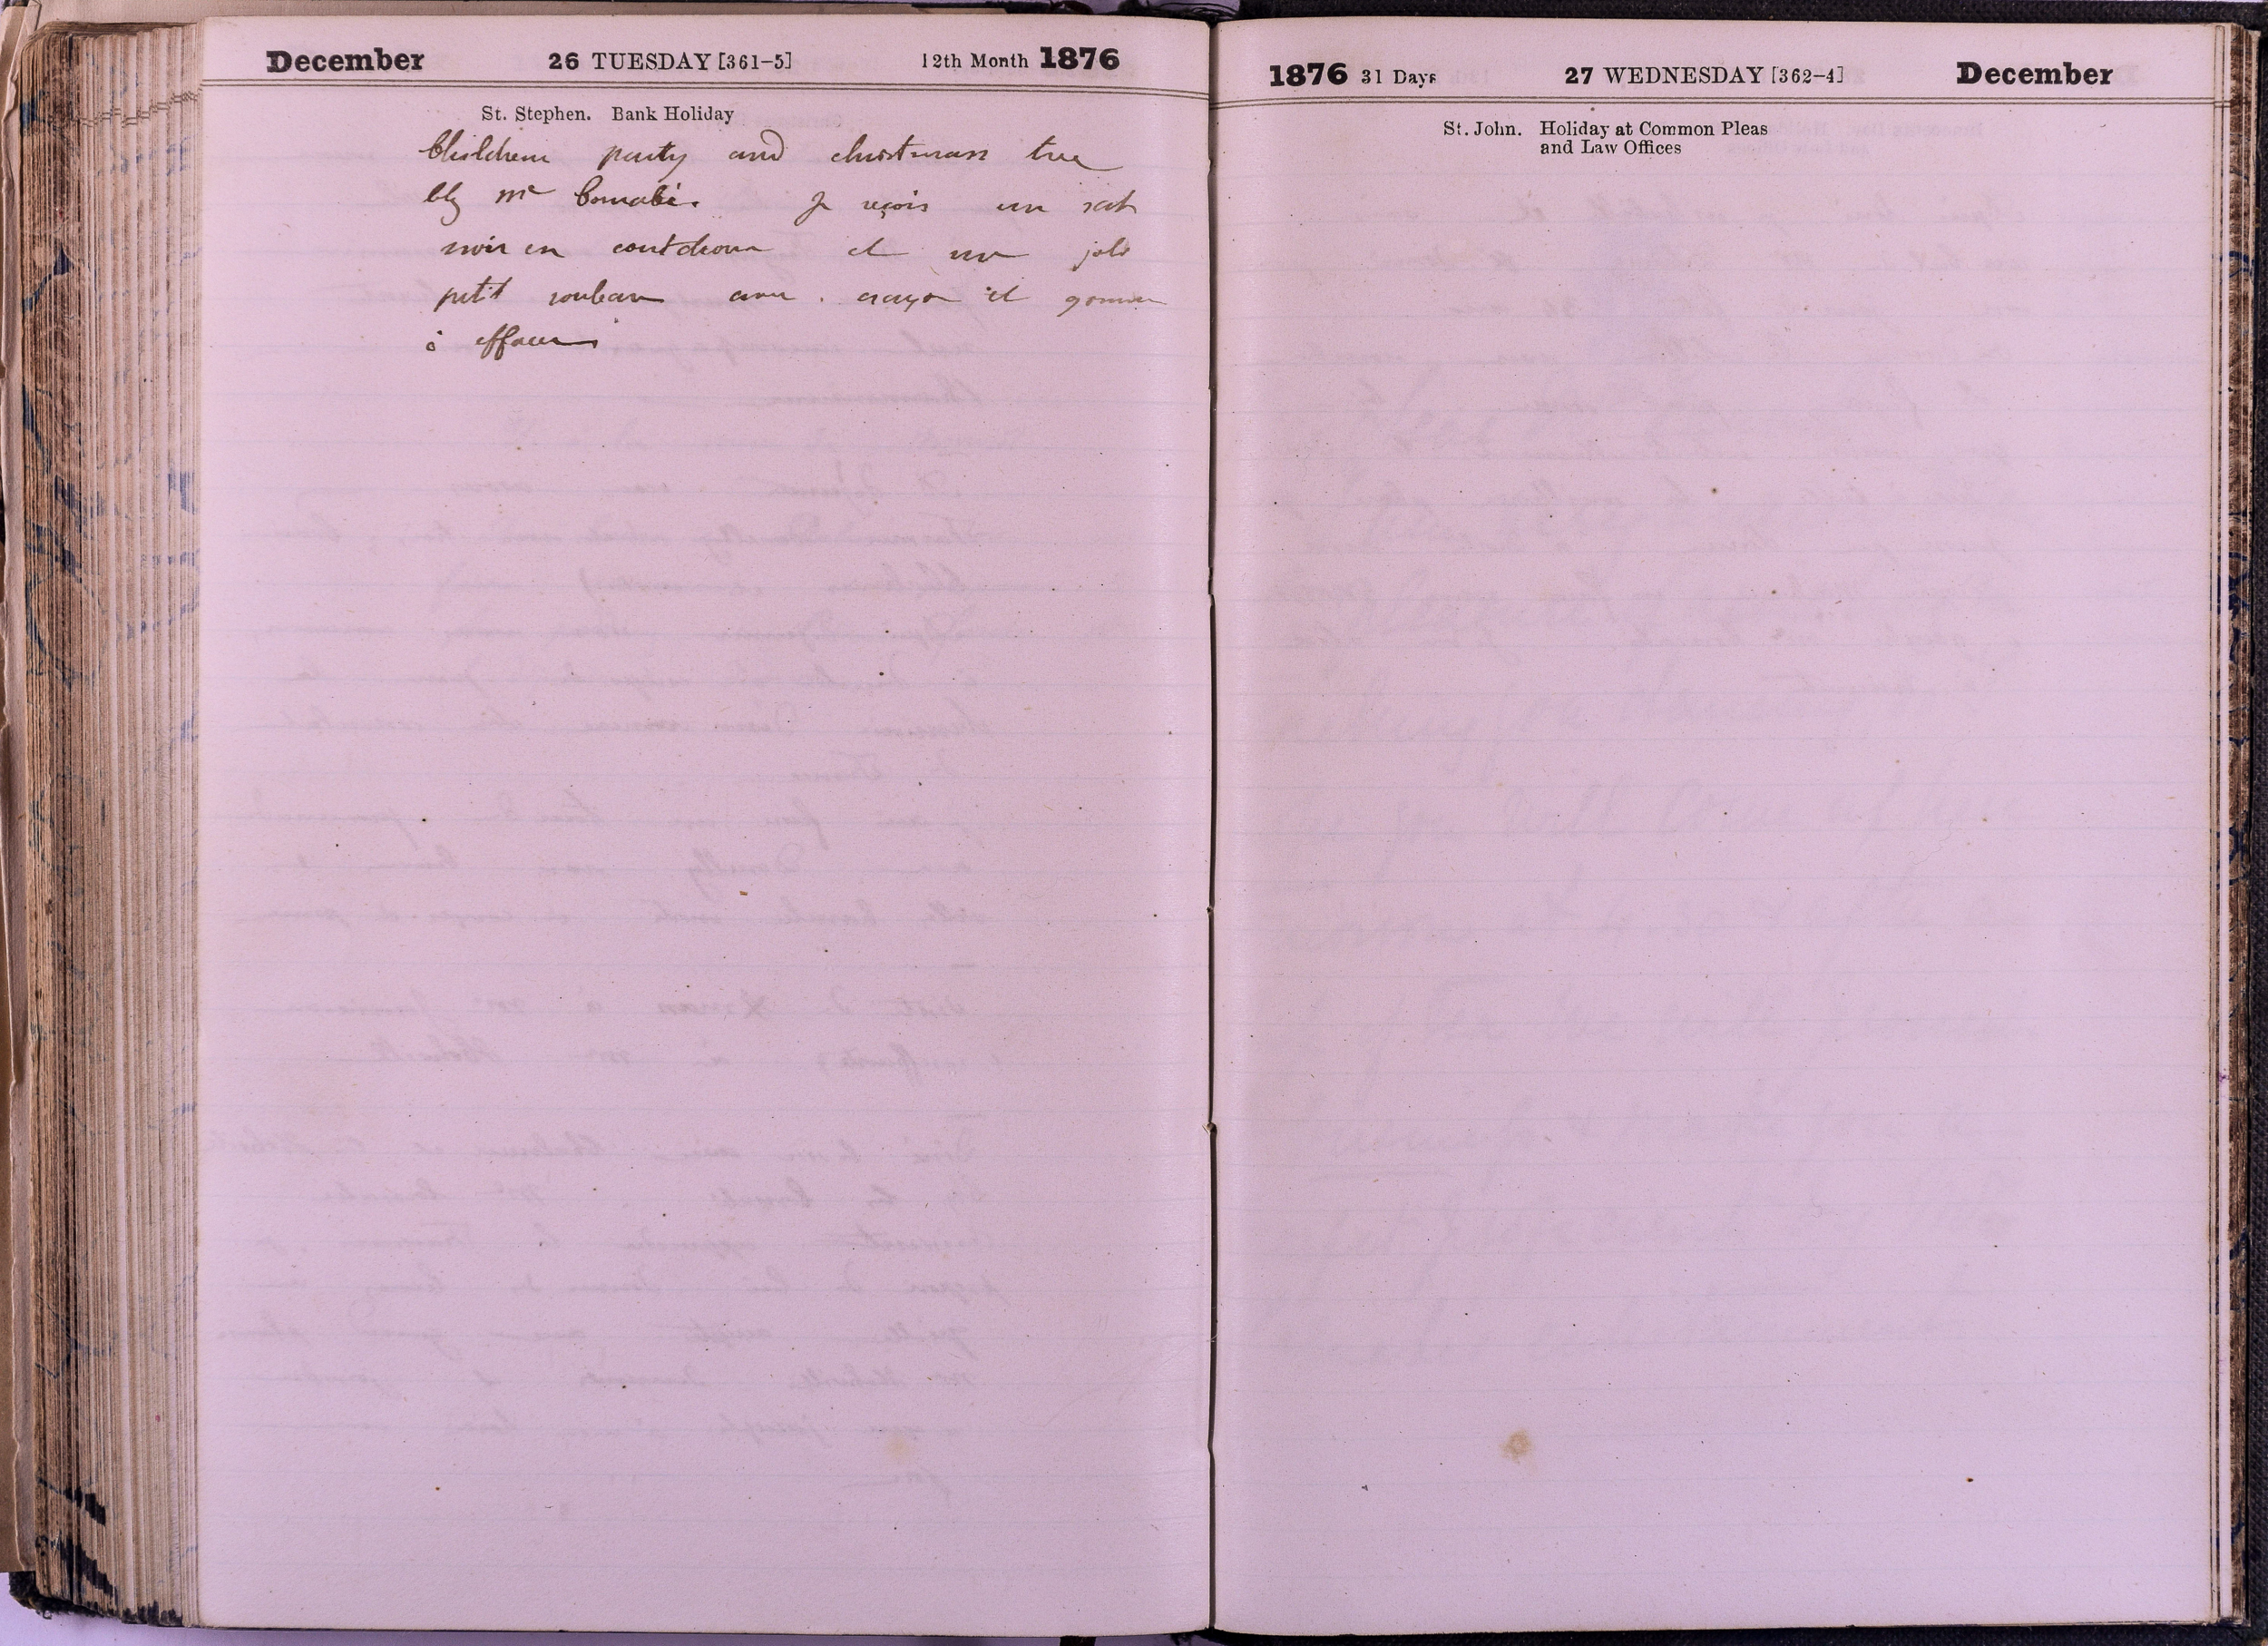 December 26 TUESDAY [361-5] 12th Month 1876
St. Stephen. Bank Holiday
Children party and christmass tree
Chz Me
Je reçois un rat
noir en coutchouc et un joli
petit rouleau avec crayon et gomme
à effacer
1876 31 Days 27 WEDNESDAY [362-4] December
St. John. Holiday at Common Pleas
and Law Offices